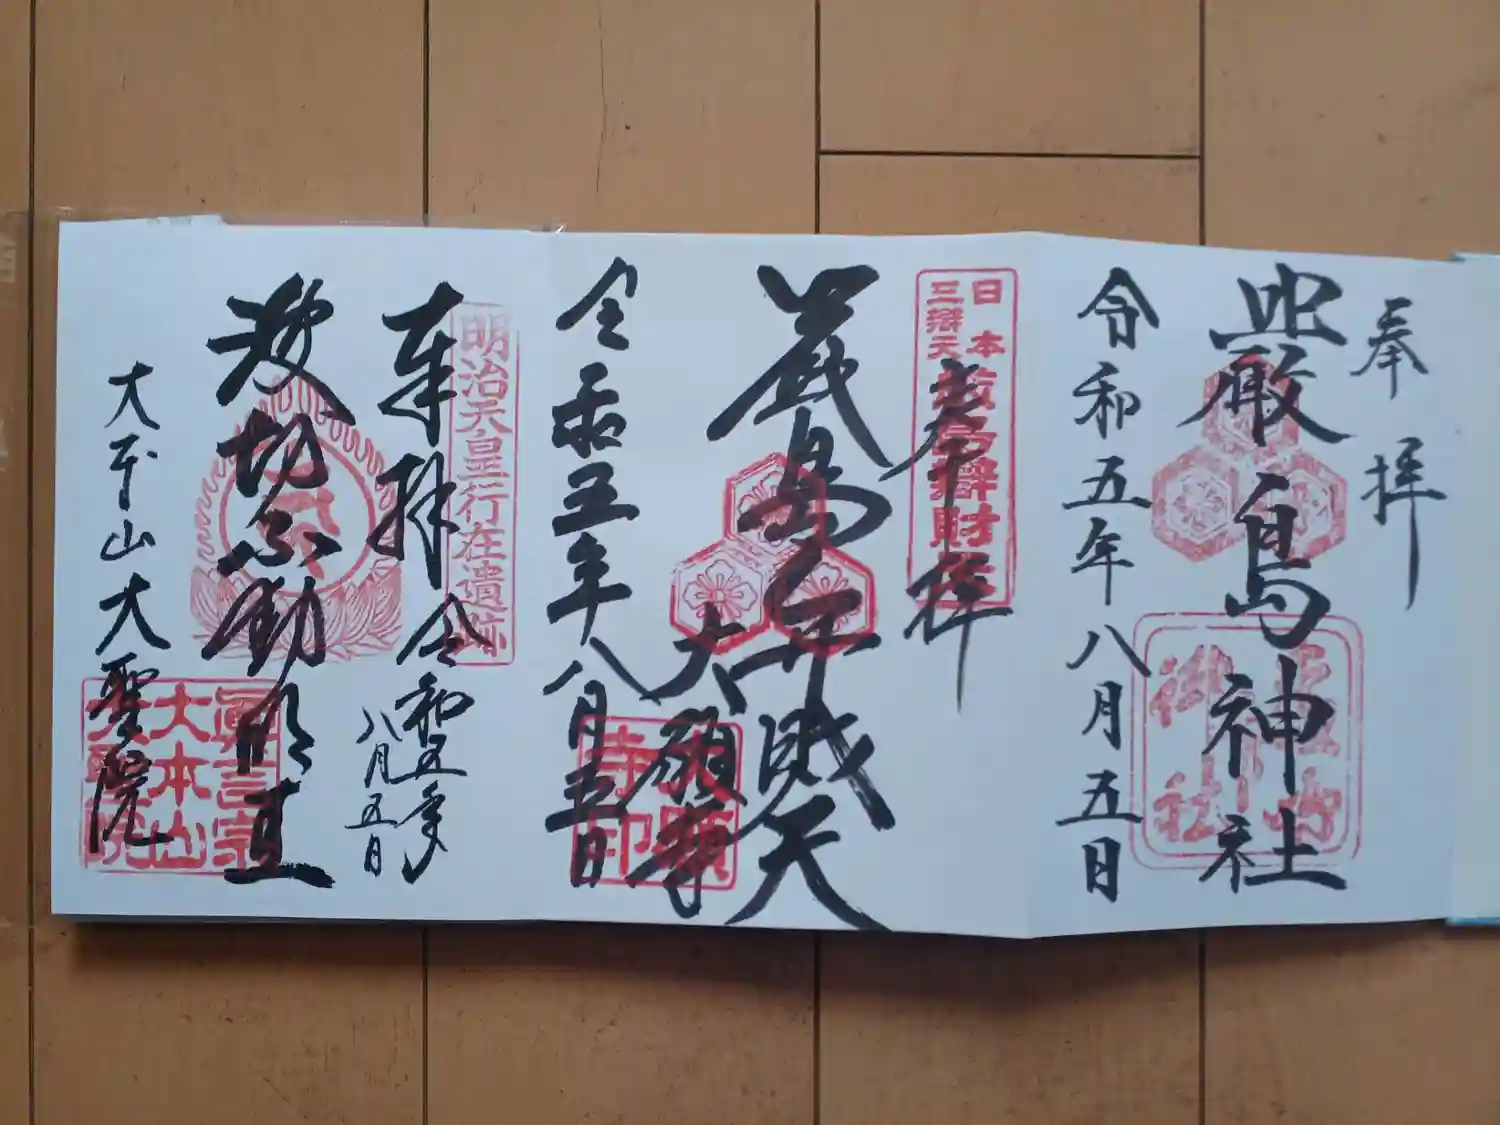 奉拝
嚴島神社
令和五年八月五日
日本
三辯天
嚴島辯財
奉拝
嚴島弁財天
大願寺
大願寺印
令和五年八月五日
明治天皇行在遺跡
奉拝
令和五年
八月五日
波切不動明王
大本山大聖院
眞言宗
大本山
大聖院